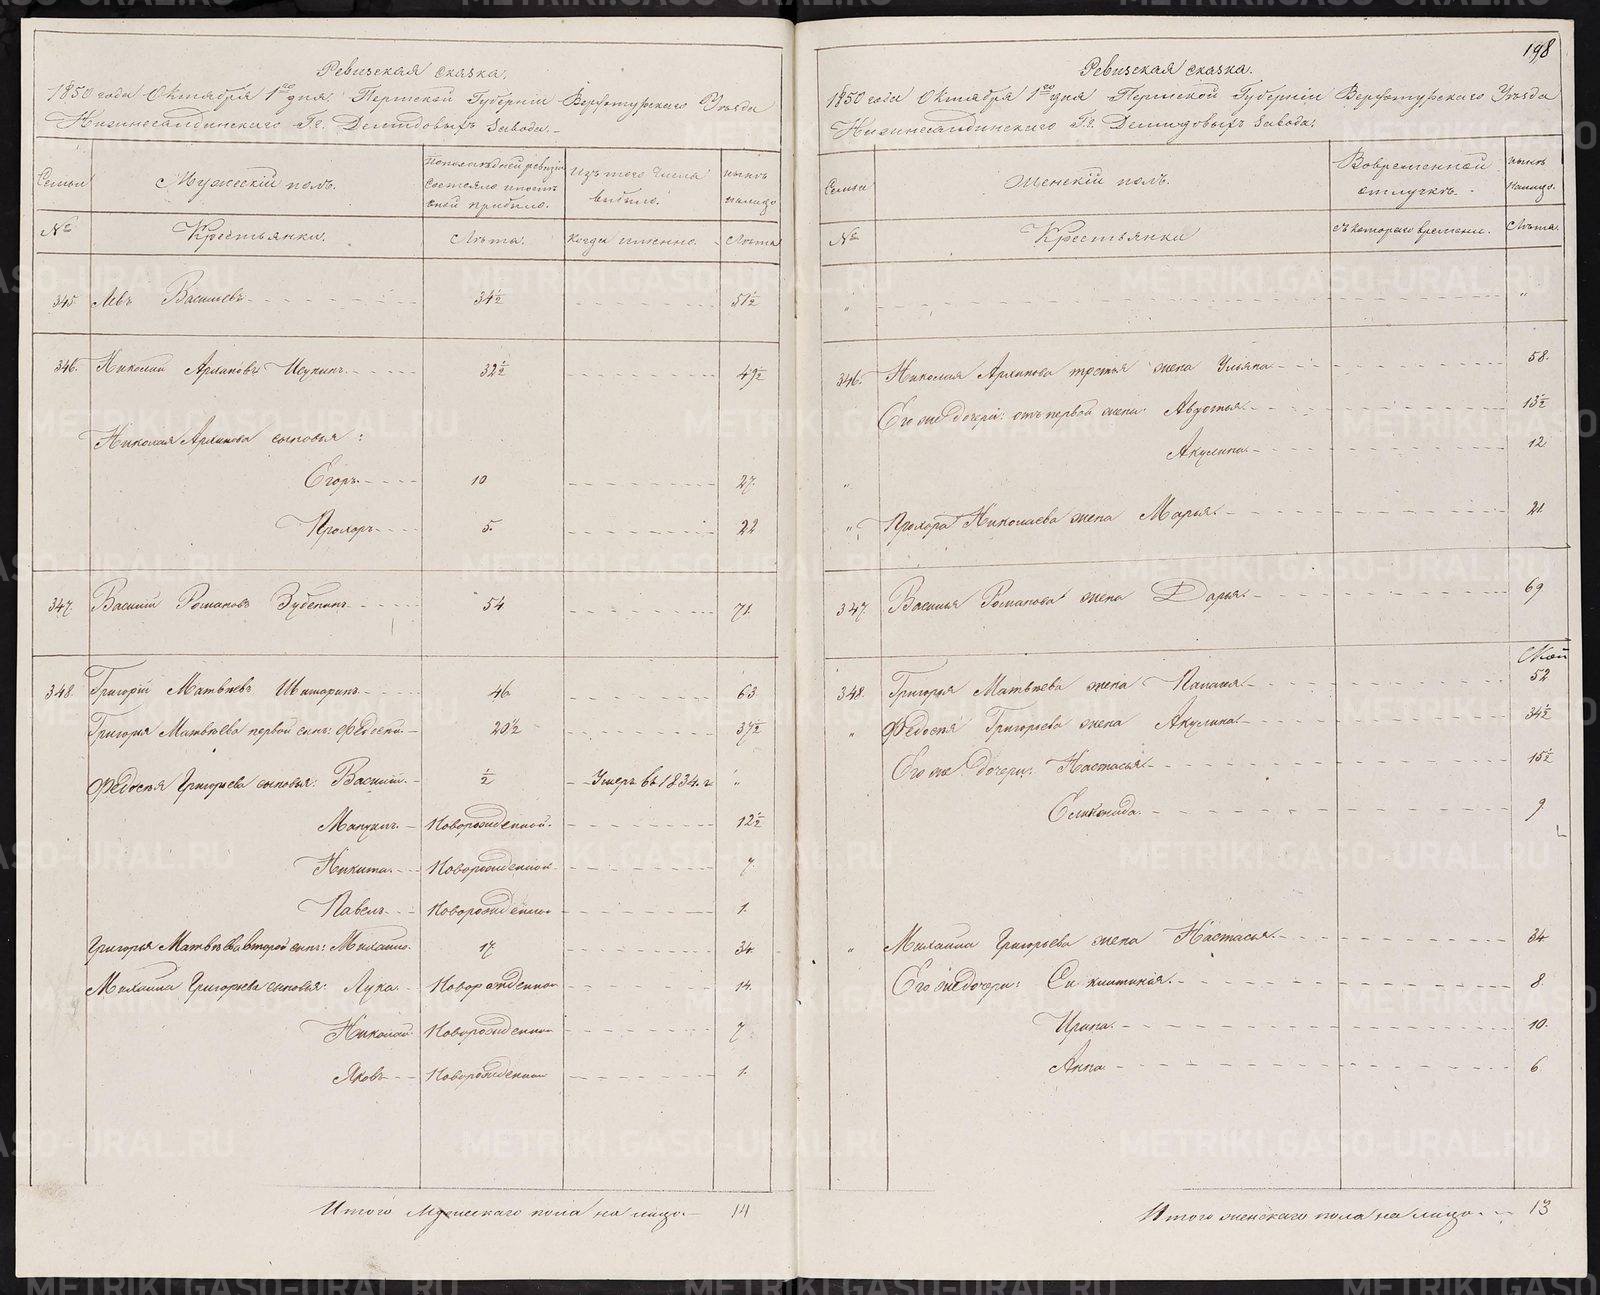 Ревизская сказка.
1850 года Октября 1го дня. Пермской Губерніи Верхотурскаго Уѣзда
Нижнесалдинскаго Гг. Демидовыхъ завода.
Семьи
Мужескій полъ.
По последней ревизіи состояло и после оной прибыло.
Изъ того числа выбыло.
Нынѣ на лицо
№
Крестьянки.
Лѣта.
Когда именно.
Лѣта
345. Левъ Васильевъ 34½ 51½
346. Николай Архиповъ 32½ 49½
Николая Архипова сыновья:
Егоръ 10 27.
Прохоръ 5. 22
347. Василій Романовъ 54 71.
348. Григорій Матвѣевъ 46. 63.
Григорья Матвѣева первой сынъ: Федосѣй. 20½ 37½
Федосѣя Григорьева сыновья: Василій. ½ Умеръ въ 1834. г. "
Новорожденной. 12½
Никита. Новорожденной 7.
Павелъ Новорожденной 1.
Григорья Матвѣева второй сынъ: Михайло. 17 34.
Михайла Григорьева сыновья: Лука. Новорожденной 14.
Николай Новорожденной 7
Яковъ Новорожденной 1.
Итого Мужескаго пола на лицо. 14
198
Ревизская сказка.
1850 года Октября 1го дня Пермской Губерніи Верхотурскаго Уѣзда
Нижнесалдинскаго Гг. Демидовыхъ завода.
Семьи
Женскій полъ.
Во временной отлучкѣ.
Нынѣ на лицо.
№
Крестьянки
Съ котораго времени.
Лѣта.
346. Николая Архипова третья жена Ульяна 58.
Его же дочери: отъ первой жены Августья. 13½
Акулина. 12
" Прохора Николаева жена Марья. 21.
347. Василья Романова жена Дарья. 69
348. Григорья Матвѣева жена 52
" Федосѣя Григорьева жена Акулина 34½
Его же дочери: Настасья 15½
9.
" Михайла Григорьева жена Настасья. 34.
Его же дочери: 8.
Ирина. 10.
Анна 6.
Итого женскаго пола на лицо. 13
METRIKI.GASO-URAL.RU